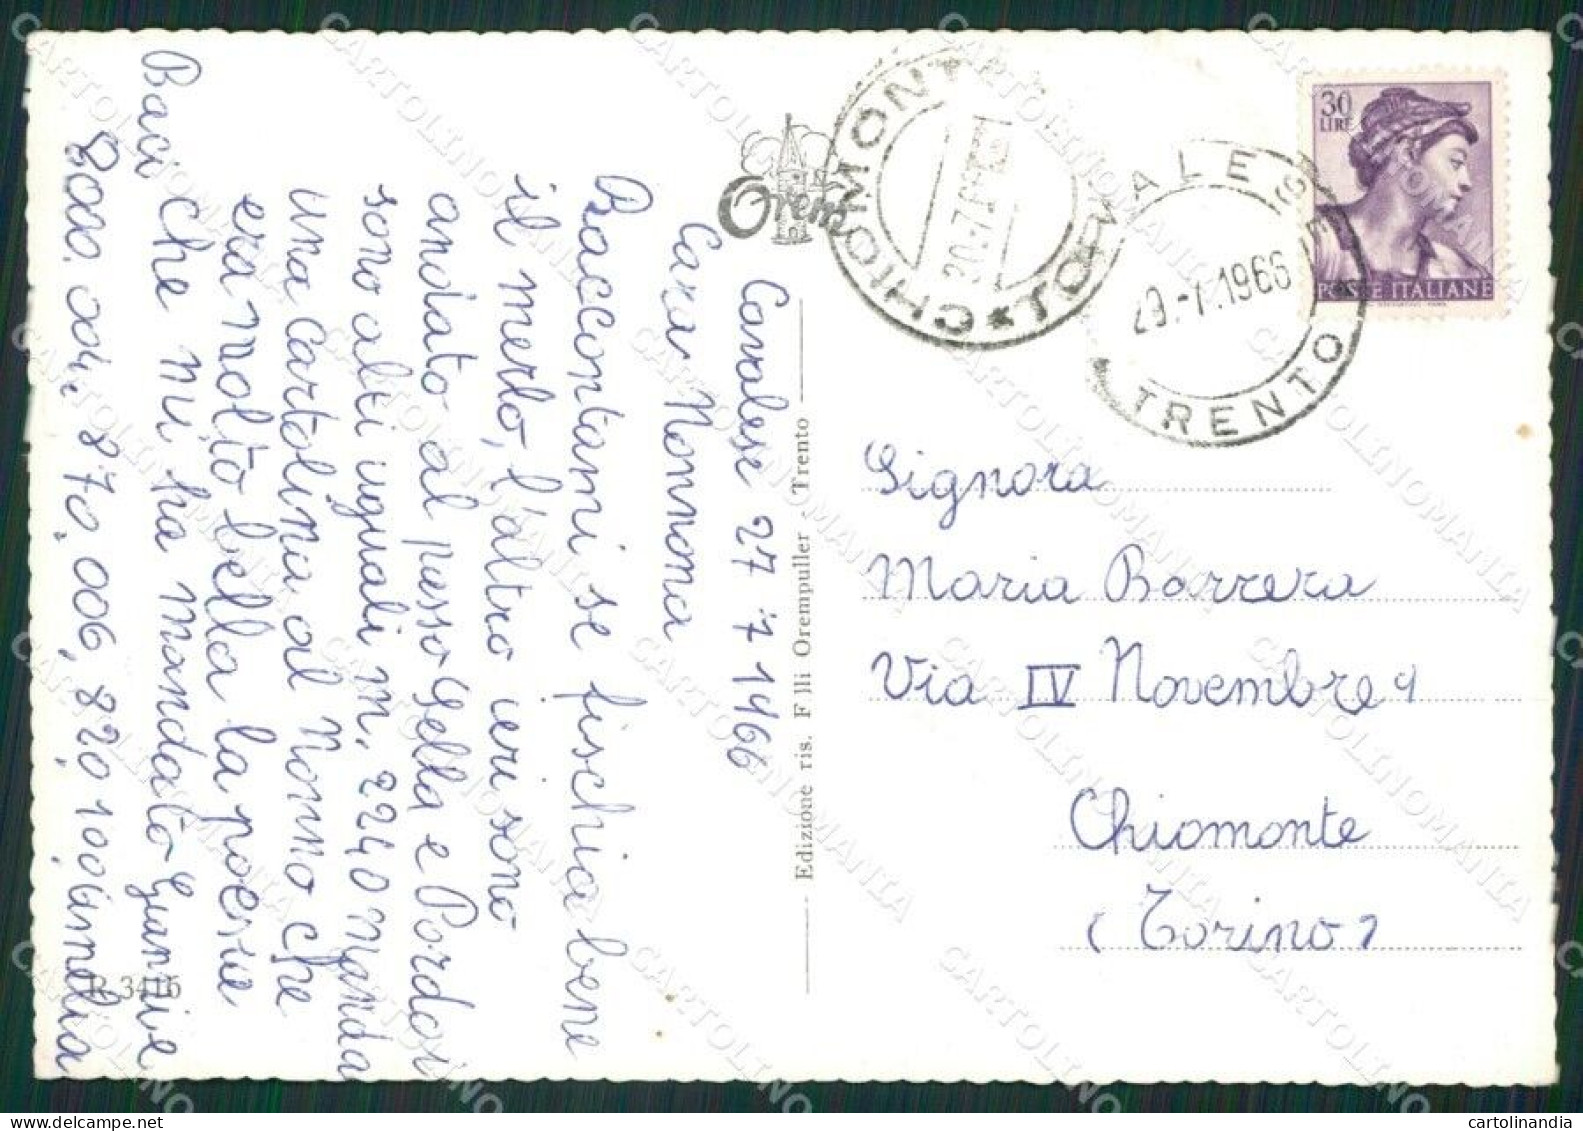 Cavalese 27 7 1966
Cara Nonnona
Raccontami se fischia bene
il merlo, l'altro ieri sono
andato al passo Sella e Pordoi
sono alti uguali m. 2240 manda
una cartolina al Nonno che
era molto bella la poesia
che mi ha mandato Grazie
Baci
870,006,820,100 Amelia
R-3416
Orem
Edizione ris. F lli Orempuller - Trento
CHIOMONTE
★ TO ★
30-7.6
CAVALESE
29.-7.1966
TRENTO
30
LIRE
POSTE ITALIANE
Signora
Maria Barrera
Via IV Novembre 9
Chiomonte
(Torino)
CARTOLINOMANIA
cartolinandia